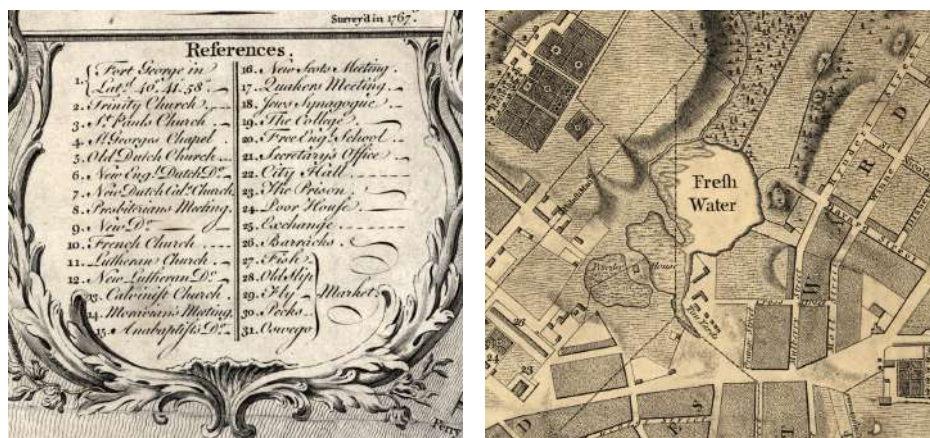 Survey'd in 1767.
References.
1. Fort George in
Lat.^d 40. 41. 58."
2. Trinity Church
3. S.^t Pauls Church
4. S.^t Georges Chapel
5. Old Dutch Church
6. New Eng.^h Dutch D.^o
7. New Dutch Cal.^n Church
8. Presbiterians Meeting.
9. New D.^o
10. French Church
11. Lutheran Church
12. New Lutheran D.^o
13. Calvinist Church
14. Moravian's Meeting.
15. Anabaptists D.^o
16. New Scots Meeting.
17. Quakers Meeting
18. Jews Synagogue
19. The College
20. Free Eng.^h School
21. Secretary's Office
22. City Hall
23. The Prison
24. Poor House
25. Exchange
26. Barracks
27. Fish
28. Old Slip
29. Fly Market
30. Pecks
31. Oswego
Ferry
Fresh
Water
Powder House
Tan Yard
Bayard Street
26
24
23
W
A
R
D